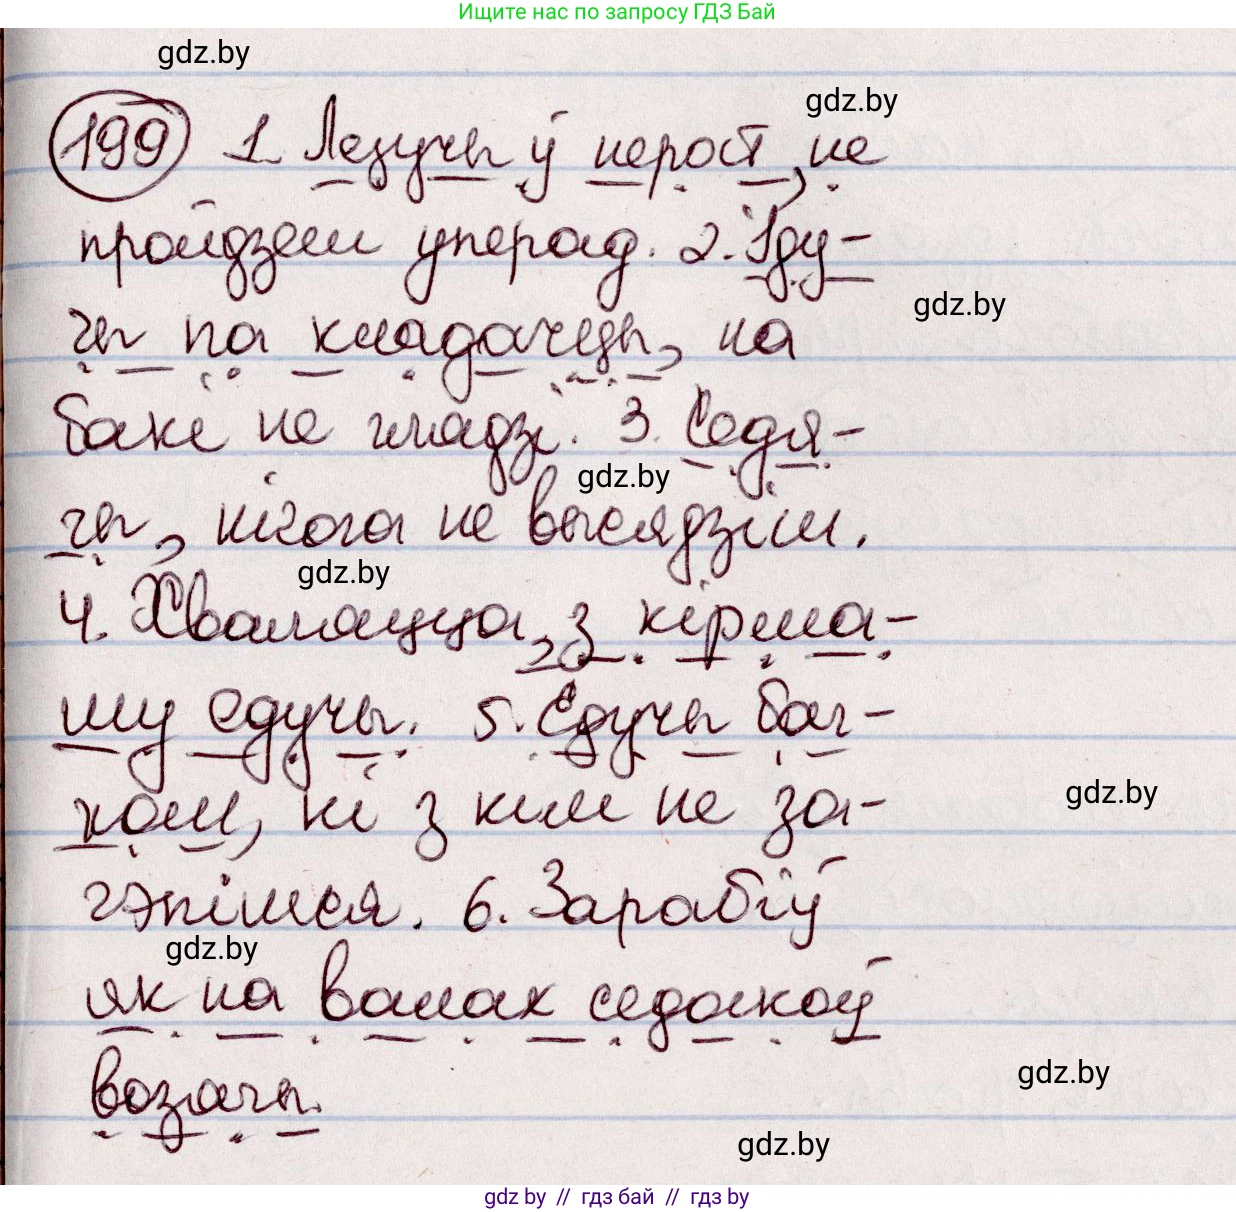 Ищите нас по запросу ГДЗ Бай
gdz.by
gdz.by
199 1. Лезучы ў нерат, не
пройдзеш уперад. 2. Іду-
gdz.by
чы па кладачцы, на
бакі не глядзі. 3. Седзя-
gdz.by
чы, нікога не выседзіш.
gdz.by
4. Хваляцца, з кірма-
шу едучы. 5. Едучы баг-
gdz.by
ком, ні з кім не за-
чэпімся. 6. Зарабіў
gdz.by
як на валах седакоў
gdz.by
возячы.
gdz.by
gdz by // гдз бай // гдз by